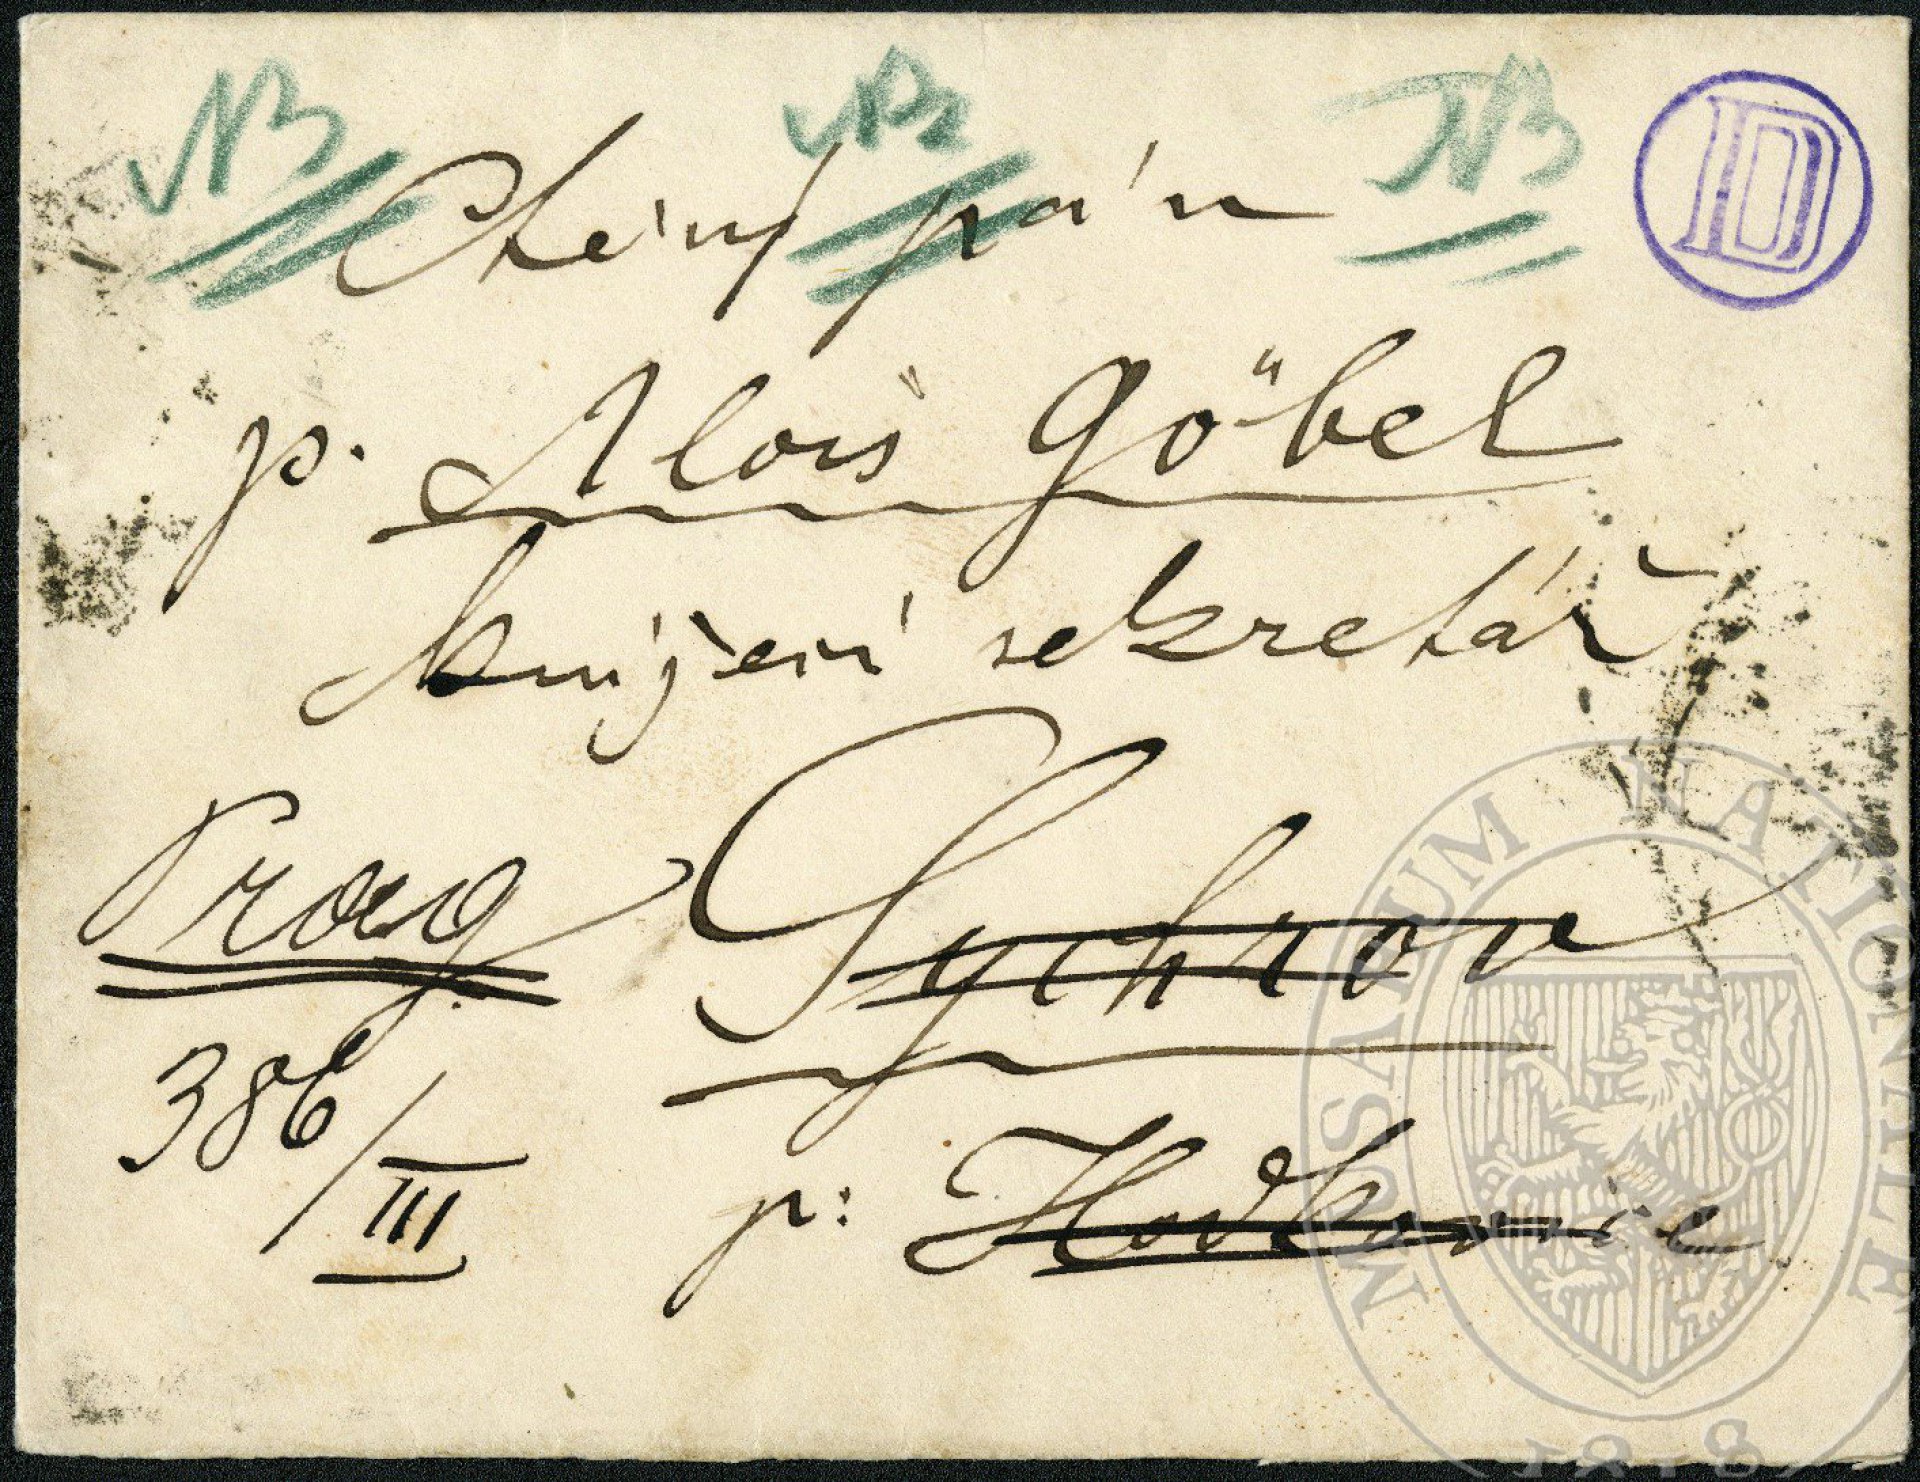 NB NB NB D
Ctěný pán
p. Alois Göbel
knížecí sekretář
Prag Sychrov
386/III
p: Hodkovice
MUSAEUM NATIONALE
1818